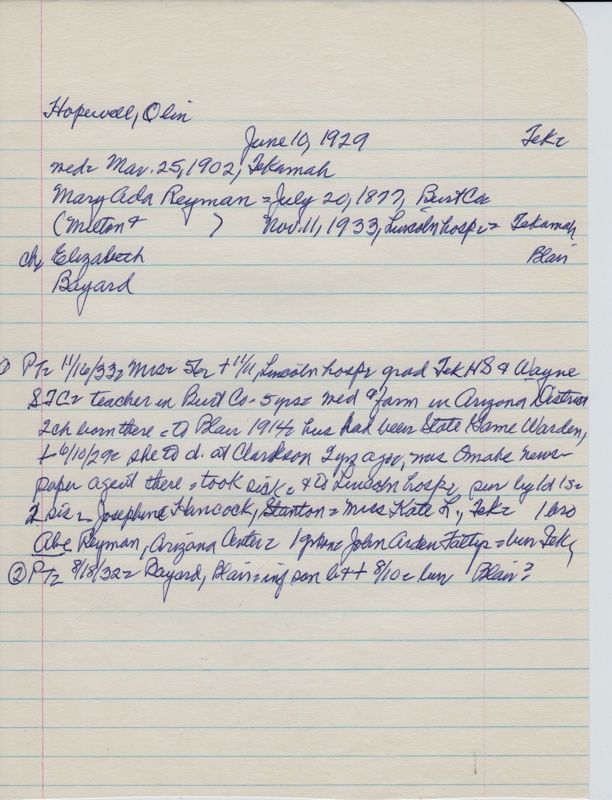 Hopewell, Olin
June 10, 1929 Tek=
med= Mar. 25, 1902, Tekamah
Mary Ada Reyman = July 20, 1877, Burt Co
(Milton + ) Nov. 11, 1933, Lincoln hosp= Tekamah
ch, Elizabeth Blair
Bayard
① PT= 11/16/33= Mrs= 56r + 11/11, Lincoln hosp= grad Tek HS & Wayne
STC= teacher in Burt Co- 5 yrs= med & farm in Arizona District
2ch born there = to Blair 1914= hus had been State Game Warden,
+ 6/10/29= she to d. at Clarkson 2 yrs ago, was Omaha news-
paper agent there = took sick = & to Lincoln hosp= sur by 1d 1s=
2 sis = Josephine Hancock, Stanton = Mrs Kate L., Tek= 1 bro
Abe Reyman, Arizona Center= 1 John Arden = bur Tek,
② PT= 8/18/32= Bayard, Blair= son + 8/10= bur Blair?